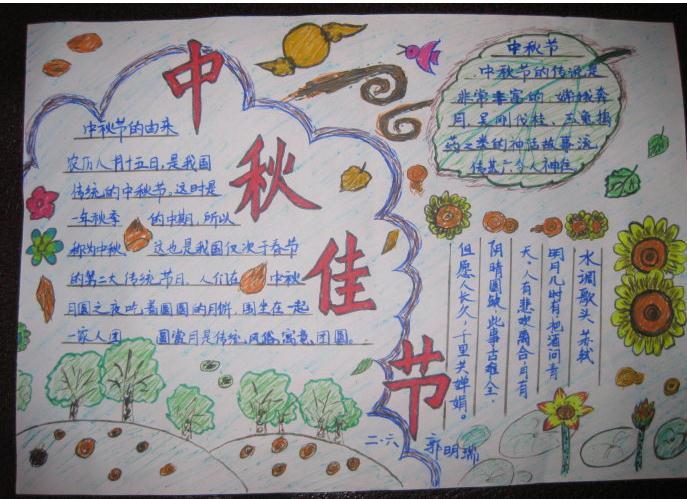 中秋佳节
中秋节的由来
农历八月十五日,是我国
传统的中秋节。这时是
一年秋季 的中期,所以
称为中秋 这也是我国仅次于春节
的第二大传统节日。人们在 中秋
月圆之夜吃着圆圆的月饼,围坐在一起
一家人团 圆赏月是传统、风俗,寓意、团圆。
中秋节
中秋节的传说是
非常丰富的,嫦娥奔
月,吴刚伐桂,玉兔捣
药之类的神话故事流
传甚广
水调歌头 苏轼
明月几时有把酒问青
天,人有悲欢离合,月有
阴晴圆缺,此事古难全,
但愿人长久,千里共婵娟。
二·六 郭明瑞